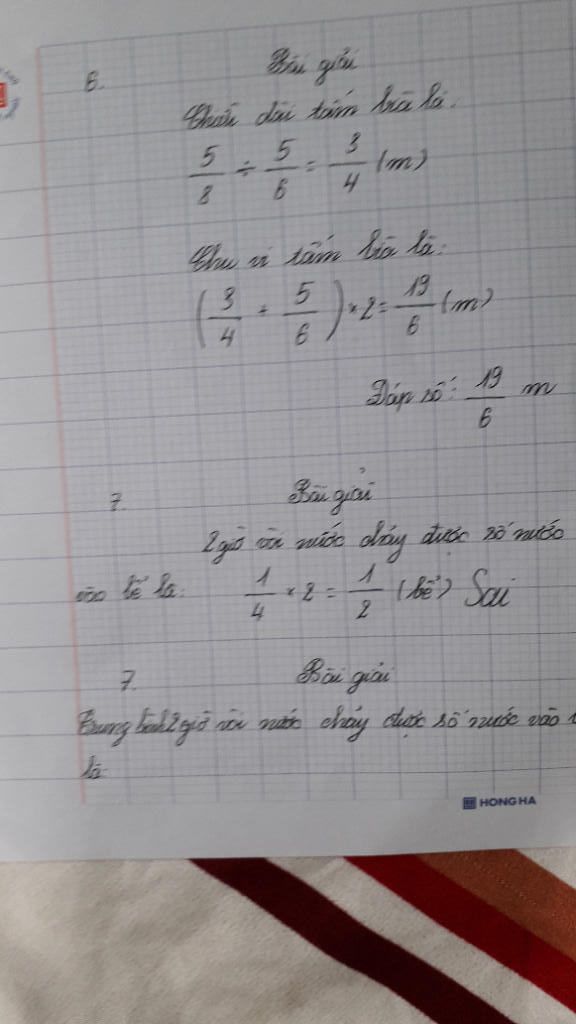 6. Bài giải
Chiều dài tấm bìa là:
5/8 ÷ 5/6 = 3/4 (m)
Chu vi tấm bìa là:
(3/4 + 5/6) × 2 = 19/6 (m)
Đáp số: 19/6 m
7. Bài giải
2 giờ vòi nước chảy được số nước
vào bể là: 1/4 × 2 = 1/2 (bể) Sai
7. Bài giải
Trung bình 2 giờ vòi nước chảy được số nước vào
là
HONG HA